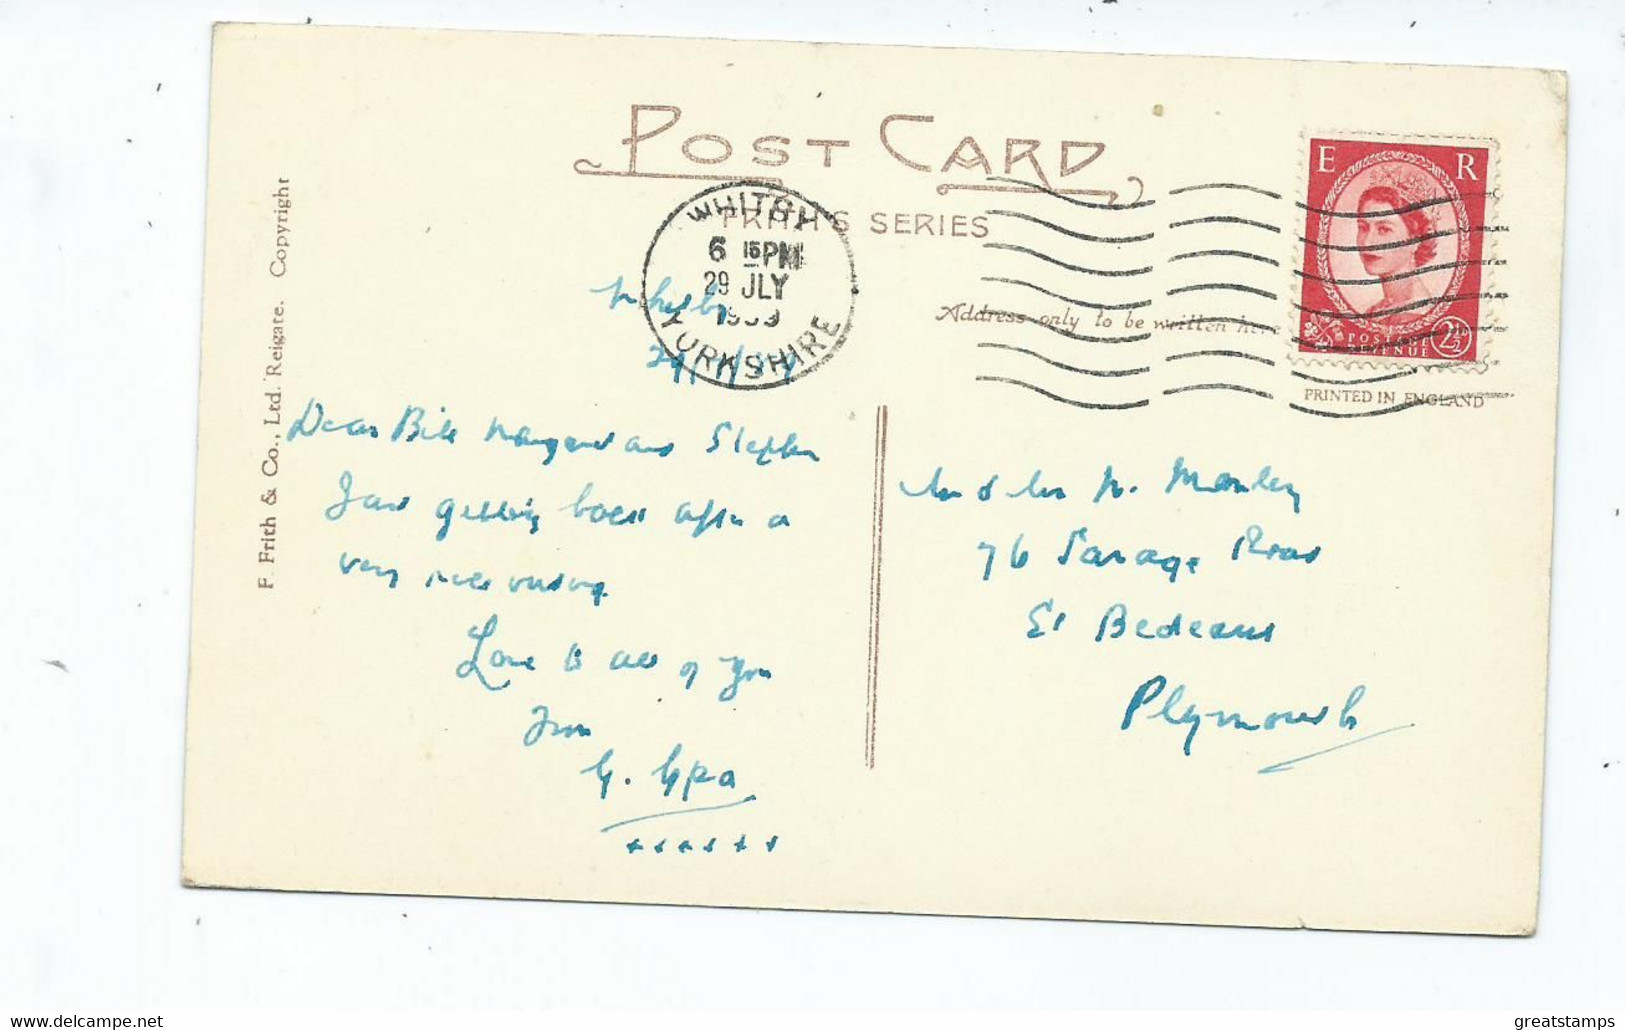 POST CARD
FRITH'S SERIES
WHITBY
6 15 PM
29 JLY
YORKSHIRE
E R
POSTAGE
REVENUE
2½D
Address only to be written here
PRINTED IN ENGLAND
F. Frith & Co., Ltd. Reigate. Copyright
Whitby
Dear Bill Margaret and Stephen
Just getting back after a
very nice
Love to all of you
From
G. Gpa
++++++
Mr & Mrs W. Manley
76 Savage Road
St Budeaux
Plymouth
www.delcampe.net
greatstamps